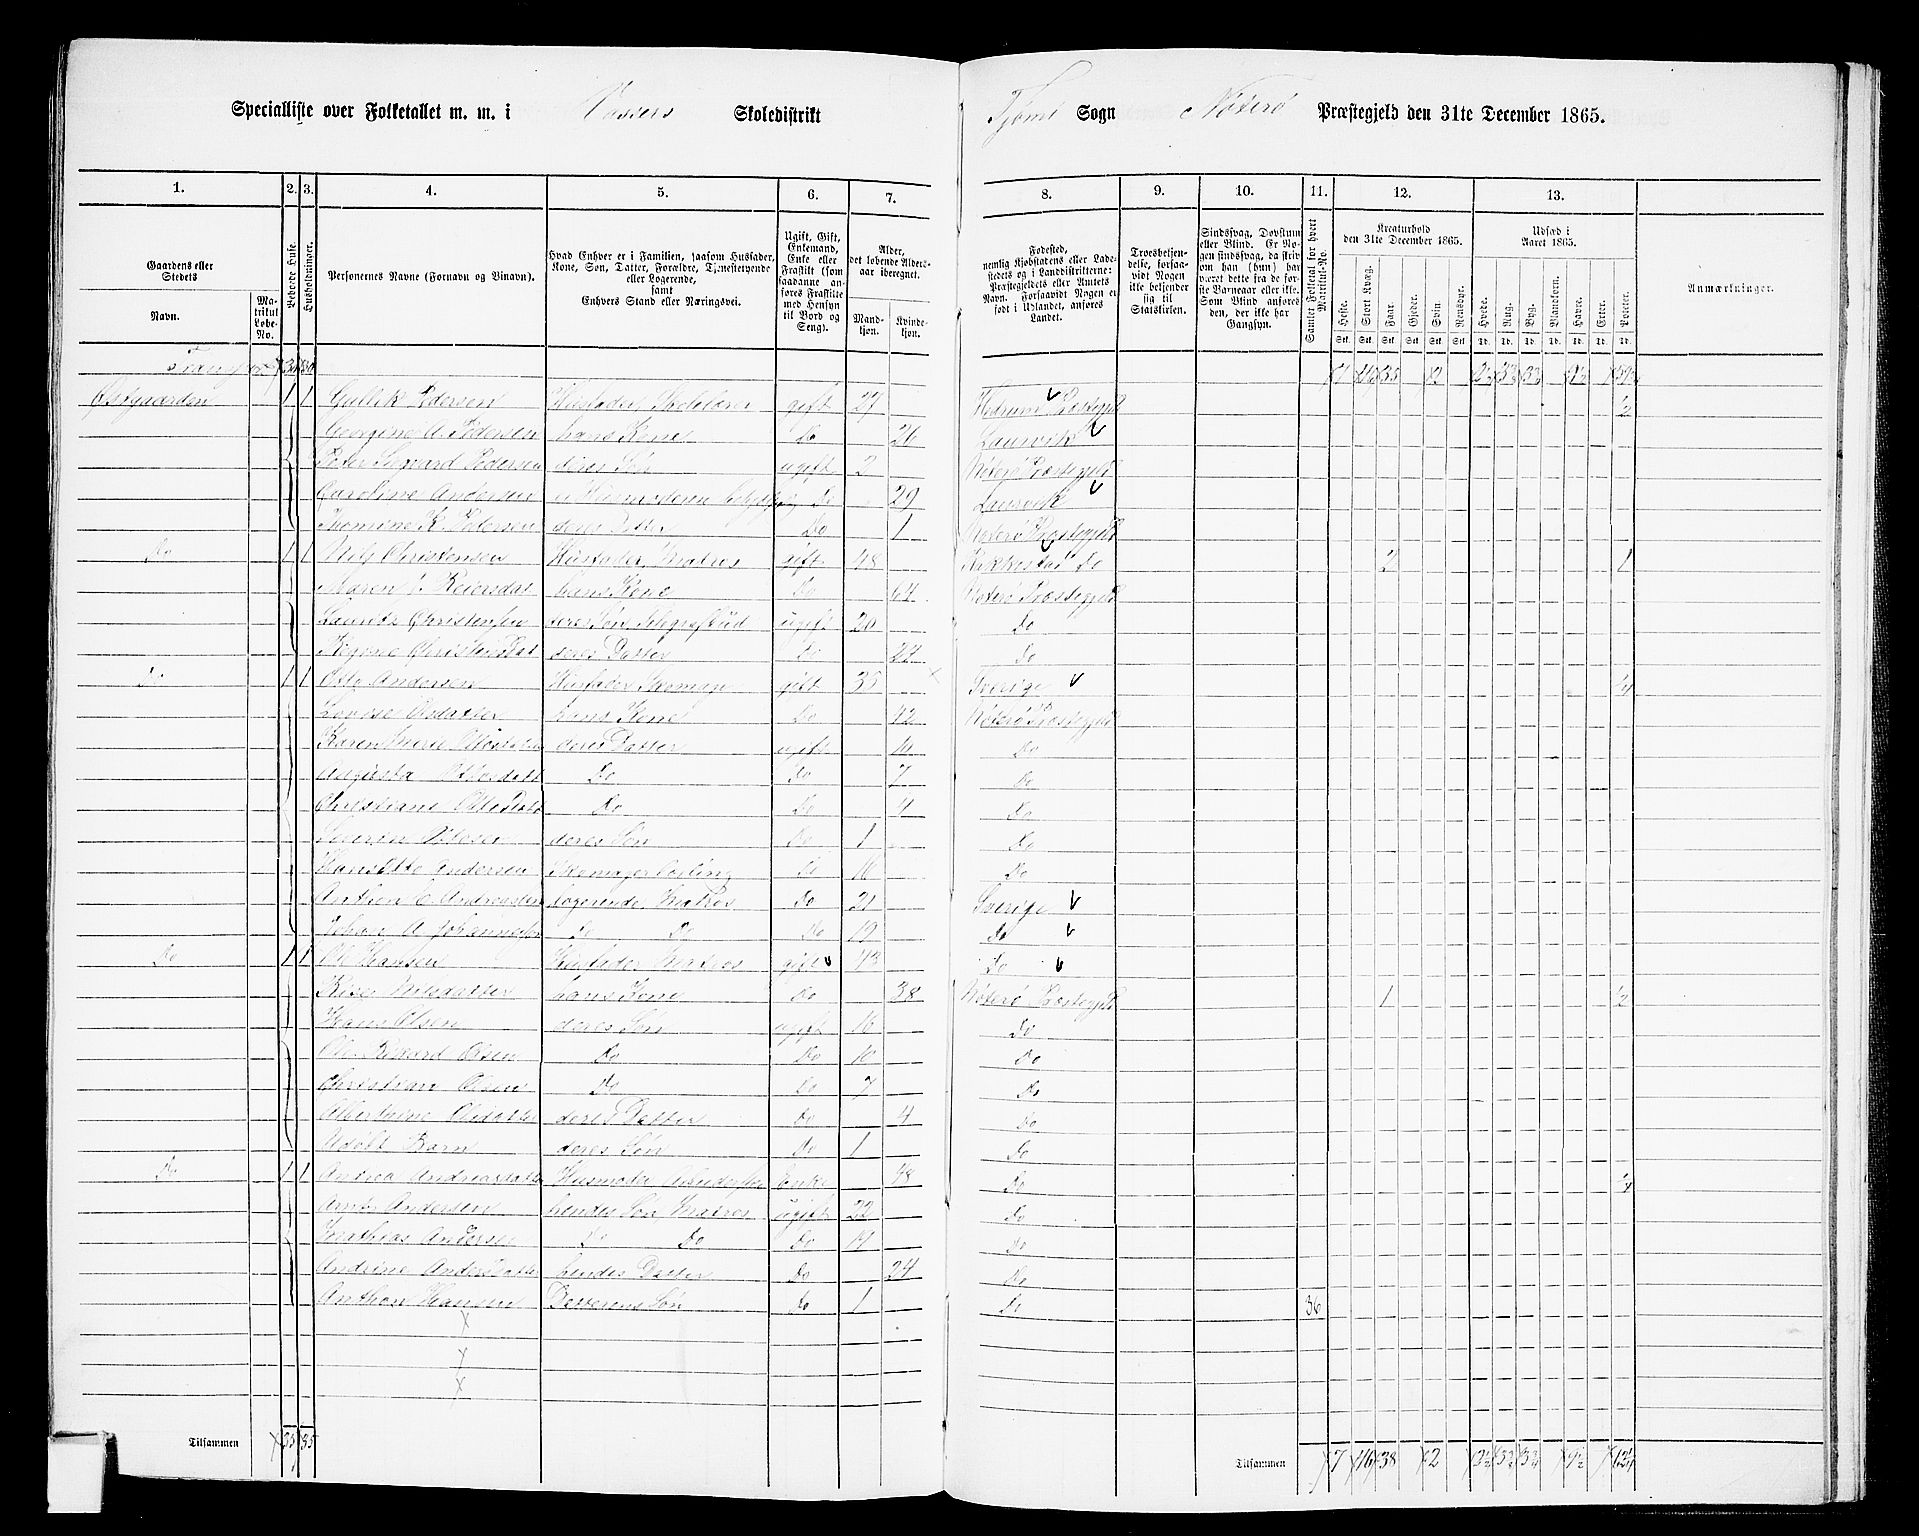 Specialliste over Folketallet m. m. i Vassers Skoledistrikt Tjømø Sogn Nøterø Præstegjeld den 31te December 1865.
1. 2. 3. 4. 5. 6. 7. 8. 9. 10. 11. 12. 13.
Gaardens eller Stedets
Navn.
Matrikul Løbe-No.
Beboede Huse.
Husholdninger.
Personernes Navne (Fornavn og Tilnavn).
Hvad Enhver er i Familien, saasom Husfader, Kone, Søn, Datter, Forældre, Tjenestetyende eller Logerende, samt Enhvers Stand eller Næringsvei.
Ugift, Gift, Enkemand, Enke eller Fraskilt (som saadanne anføres Fraskilte med Hensyn til Bord og Seng).
Alder, det løbende Alders-aar iberegnet.
Mandkjøn. Kvindekjøn.
Fødested, nemlig Kjøbstadens eller Ladestedets og i Landdistrikterne: Præstegjeldets eller Amtets Navn. Forsaavidt Nogen er født i Udlandet, anføres Landet.
Troesbekjendelse, forsaavidt Nogen ikke bekjender sig til Statskirken.
Sindssvag, Døvstum eller Blind. Er Nogen sindssvag, da skrives om han (hun) har været dette fra de første Barneaar eller ikke. Som Blind anføres den, der ikke har Gangsyn.
Samlet Folketal for hvert Matrikul-No.
Kreaturhold den 31te December 1865.
Heste. Stort Kvæg. Faar. Gjeder. Svin. Rensdyr.
Udsæd i Aaret 1865.
Hvede. Rug. Byg. Blandkorn. Havre. Erter. Poteter.
Anmærkninger.
Transport 30 30
Østgaarden 1 1 Gullik Pedersen Husfader, Skolelærer gift 27 Hedrum Præstegjeld 1/2
Georgine A. Pedersen hans Kone Do 26 Laurvik
Peter Sigvard Pedersen deres Søn ugift 2 Nøterø Præstegjeld
Caroline Andersen Do 29 Laurvik
Thomine K. Pedersen deres Datter Do 1 Nøterø Præstegjeld
Do 1 1 Nils Christensen Husfader, Matros gift 48 Do 2 1
Maren Reiersdat hans Kone Do 64 Nøterø Præstegjeld
Lauritz Christensen deres Søn ugift 20 Do
Regine Christensdat deres Datter Do 22 Do
Do 1 1 Otto Andersen Husfader Skomager gift 35 Sverige 1/4
Lovise Olsdatter hans Kone Do 42 Nøterø Præstegjeld
Karen Marie Ottosdatter deres Datter ugift 10 Do
Augusta Ottosdatt Do Do 7 Do
Christiane Ottosdat Do Do 4 Do
Severin Ottosen deres Søn Do 1 Do
Hans Otto Andersen Skomagerlærling Do 16 Do
Anthon C. Andreassen logerende, Matros Do 21 Sverige
Johan A. Johannesen Do Do Do 19 Do
Do 1 1 Ole Hansen Husfader Matros gift 43 Do
Nilsdatter hans Kone Do 38 Nøterø Præstegjeld 1 1/2
Hans Olsen deres Søn ugift 16 Do
Ole Rikard Olsen Do Do 10 Do
Christian Olsen Do Do 7 Do
Albertine Olsdatter deres Datter Do 4 Do
Adolf Barn deres Søn Do 1 Do
Do 1 1 Andrea Andreasdatter Husmoder Enke 48 Do 1/4
Andersen hendes Søn Matros ugift 22 Do
Mathias Andersen Do Do Do 19 Do
Andrine Andersdatter hendes Datter Do 24 Do
Anthon Hansen Datterens Søn Do 1 Do 36
Tilsammen 35 35
Tilsammen 7 16 38 2